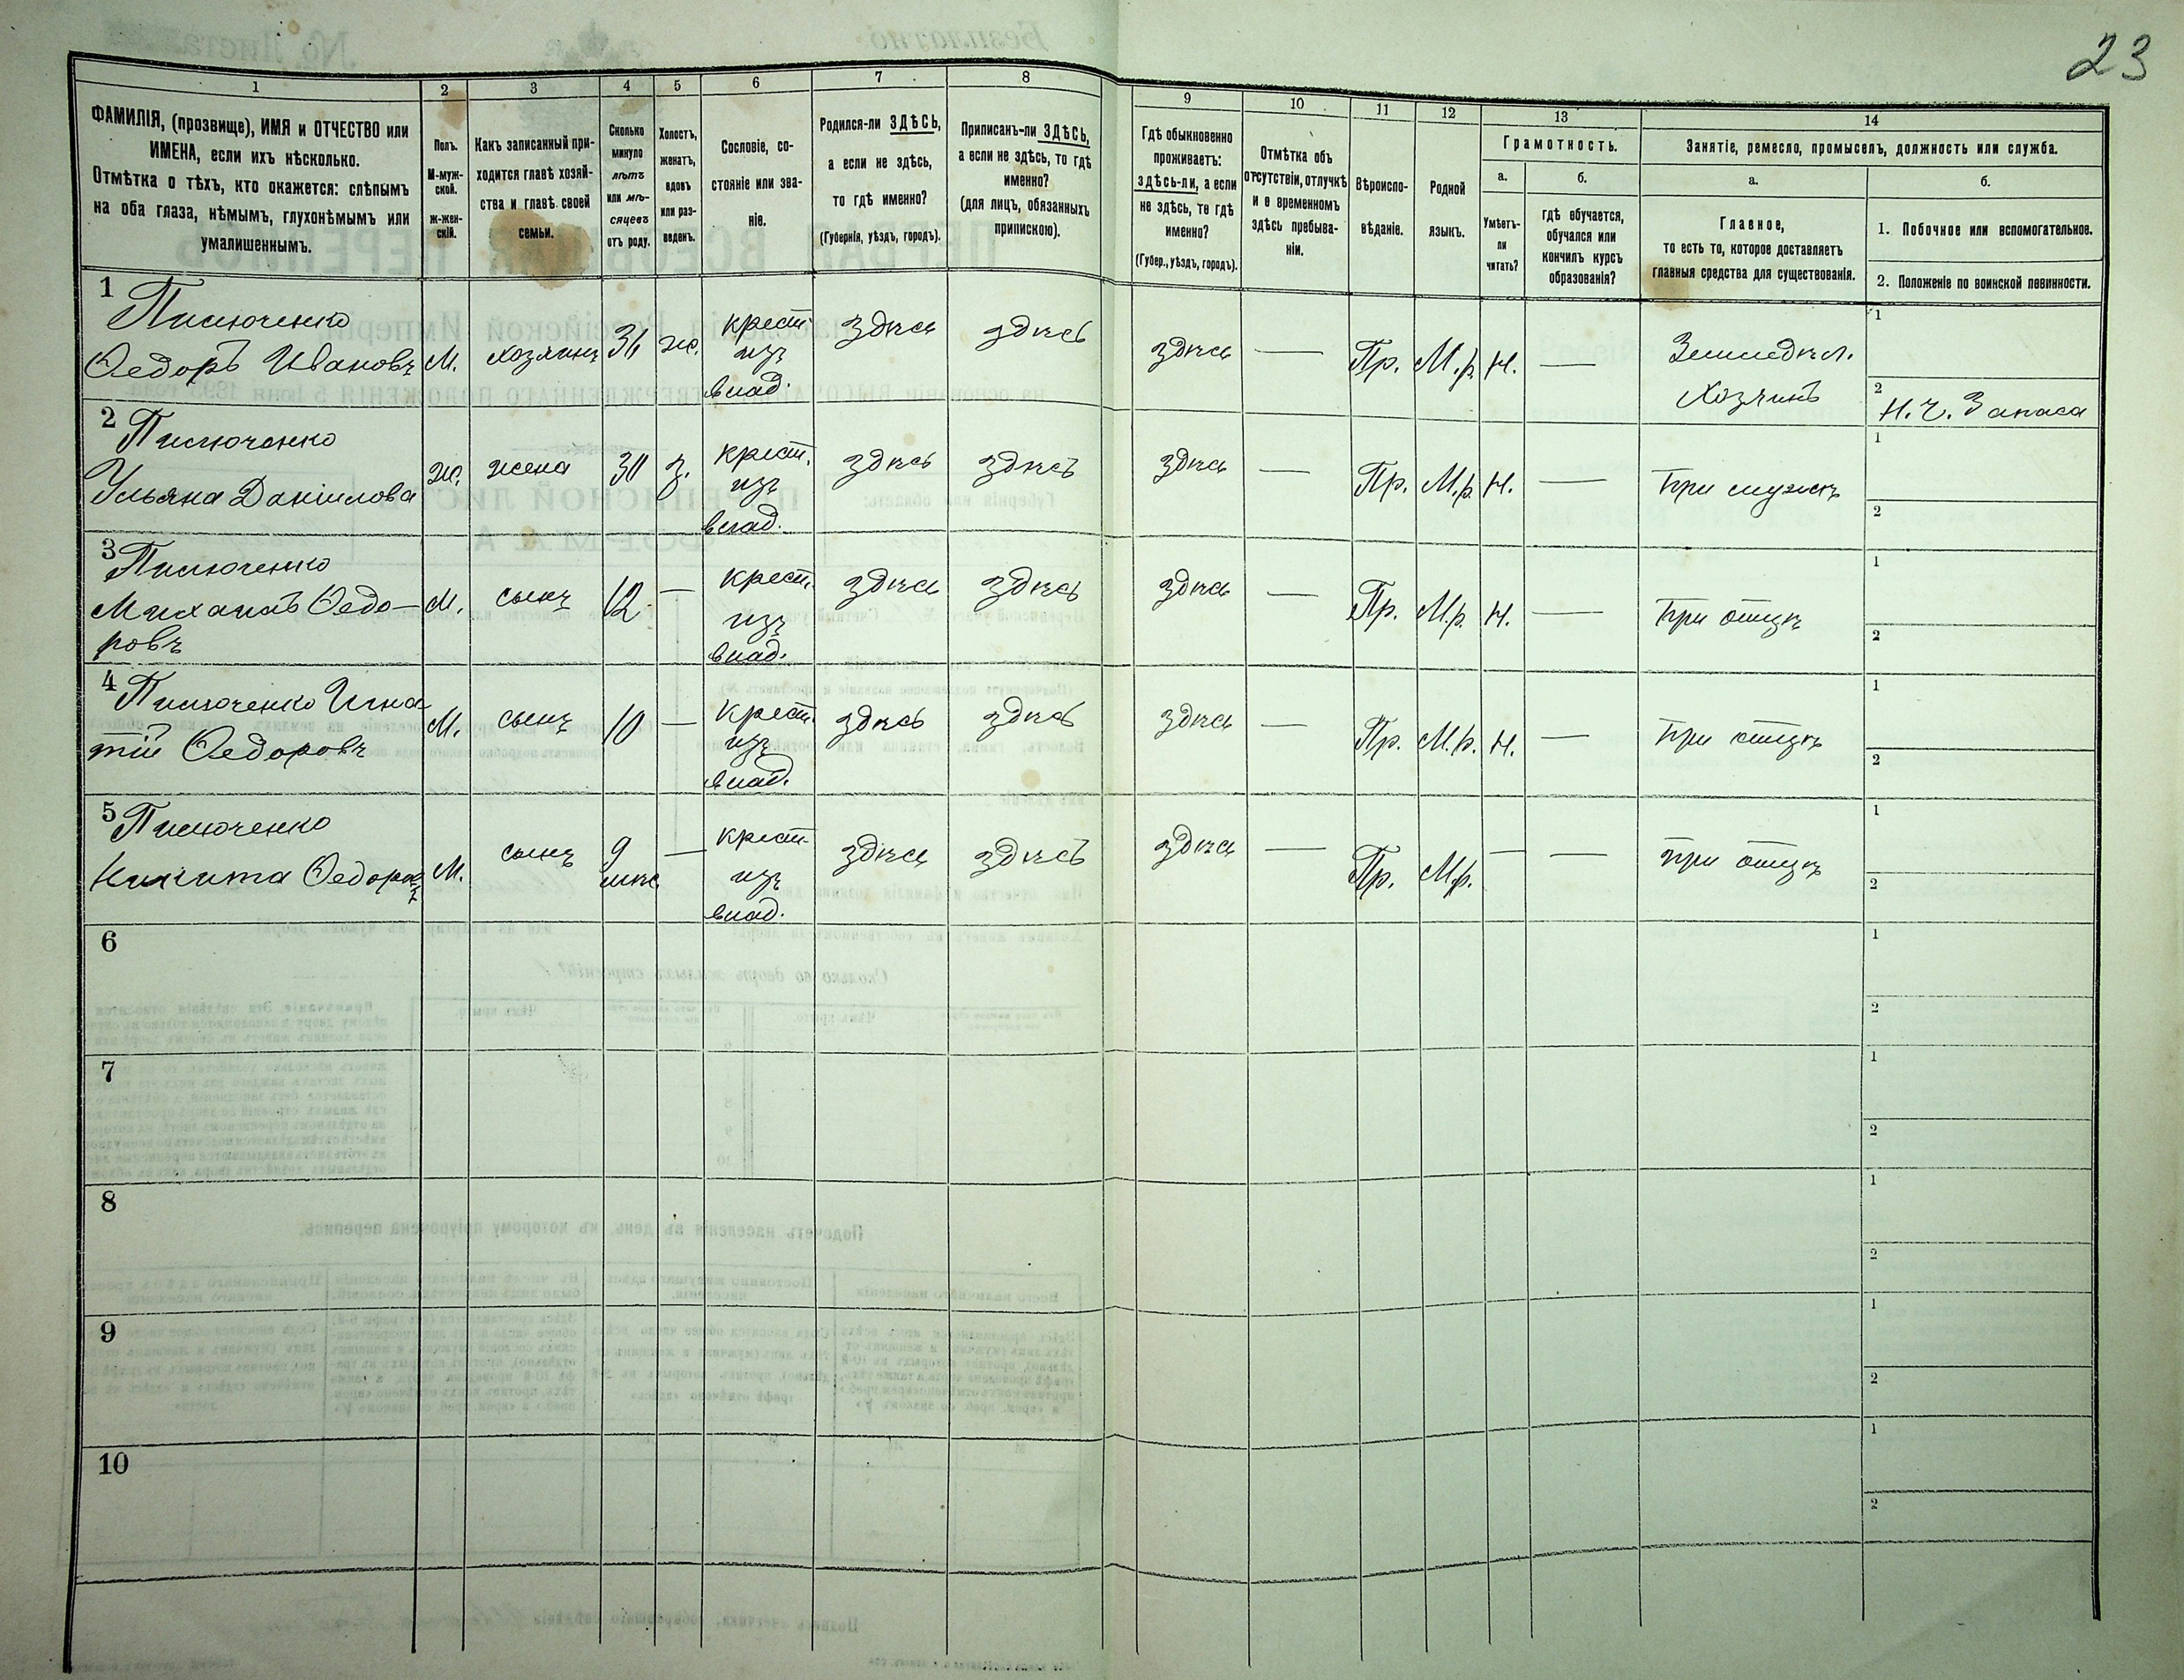 23
1
2
3
4
5
6
7
8
9
10
11
12
13
14
ФАМИЛІЯ, (прозвище), ИМЯ и ОТЧЕСТВО или
ИМЕНА, если ихъ нѣсколько.
Отмѣтка о тѣхъ, кто окажется: слѣпымъ
на оба глаза, нѣмымъ, глухонѣмымъ или
умалишеннымъ.
Полъ.
М-муж-
ской.
ж-жен-
скій.
Какъ записанный при-
ходится главѣ хозяй-
ства и главѣ своей
семьи.
Сколько
минуло
лѣтъ
или мѣ-
сяцевъ
отъ роду.
Холостъ,
женатъ,
вдовъ
или раз-
веденъ.
Сословіе, со-
стояніе или зва-
ніе.
Родился-ли ЗДѢСЬ,
а если не здѣсь,
то гдѣ именно?
(Губернія, уѣздъ, городъ).
Приписанъ-ли ЗДѢСЬ,
а если не здѣсь, то гдѣ
именно?
(для лицъ, обязанныхъ
припискою).
Гдѣ обыкновенно
проживаетъ:
здѣсь-ли, а если
не здѣсь, то гдѣ
именно?
(Губер., уѣздъ, городъ).
Отмѣтка объ
отсутствіи, отлучкѣ
и о временномъ
здѣсь пребыва-
ніи.
Вѣроиспо-
вѣданіе.
Родной
языкъ.
Грамотность.
а.
Умѣетъ-
ли
читать?
б.
гдѣ обучается,
обучался или
кончилъ курсъ
образованія?
Занятіе, ремесло, промыселъ, должность или служба.
а.
Главное,
то есть то, которое доставляетъ
главныя средства для существованія.
б.
1. Побочное или вспомогательное.
2. Положеніе по воинской повинности.
1
Пилюченко
Ѳедоръ Ивановъ М. хозяинъ 31 ж. крест. изъ влад. здѣсь здѣсь здѣсь — Пр. М.р. Н. — Земледѣл. Хозяинъ
1
2 Н. Ч. Запаса
2
Пилюченко
Ульяна Даніилова ж. жена 30 з. крест. изъ влад. здѣсь здѣсь здѣсь — Пр. М.р. Н. — При мужѣ
1
2
3
Пилюченко
Михаилъ Ѳедо-
ровъ М. сынъ 12 — крест. изъ влад. здѣсь здѣсь здѣсь — Пр. М.р. Н. — При отцѣ
1
2
4
Пилюченко Игна-
тій Ѳедоровъ М. сынъ 10 — крест. изъ влад. здѣсь здѣсь здѣсь — Пр. М.р. Н. — при отцѣ
1
2
5
Пилюченко
Никита Ѳедоровъ М. сынъ 9 мѣс. — крест. изъ влад. здѣсь здѣсь здѣсь — Пр. М.р. — — при отцѣ
1
2
6
1
2
7
1
2
8
1
2
9
1
2
10
1
2